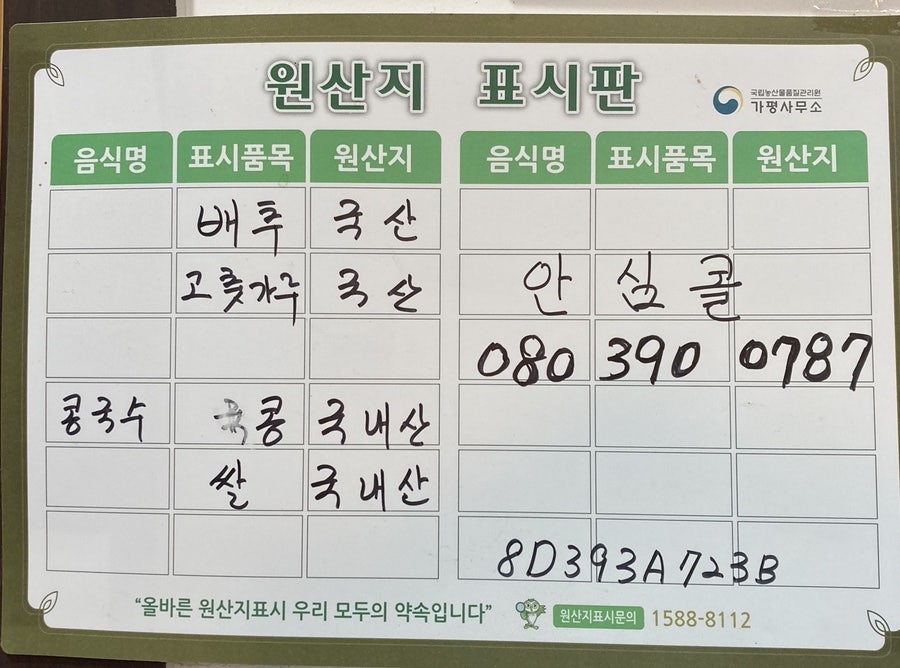 원산지 표시판
국립농산물품질관리원
가평사무소
음식명 표시품목 원산지 음식명 표시품목 원산지
배추 국산
고춧가루 국산
안심콜
080 390 0787
콩국수 콩 국내산
쌀 국내산
8D393A723B
“올바른 원산지표시 우리 모두의 약속입니다” 원산지표시문의 1588-8112